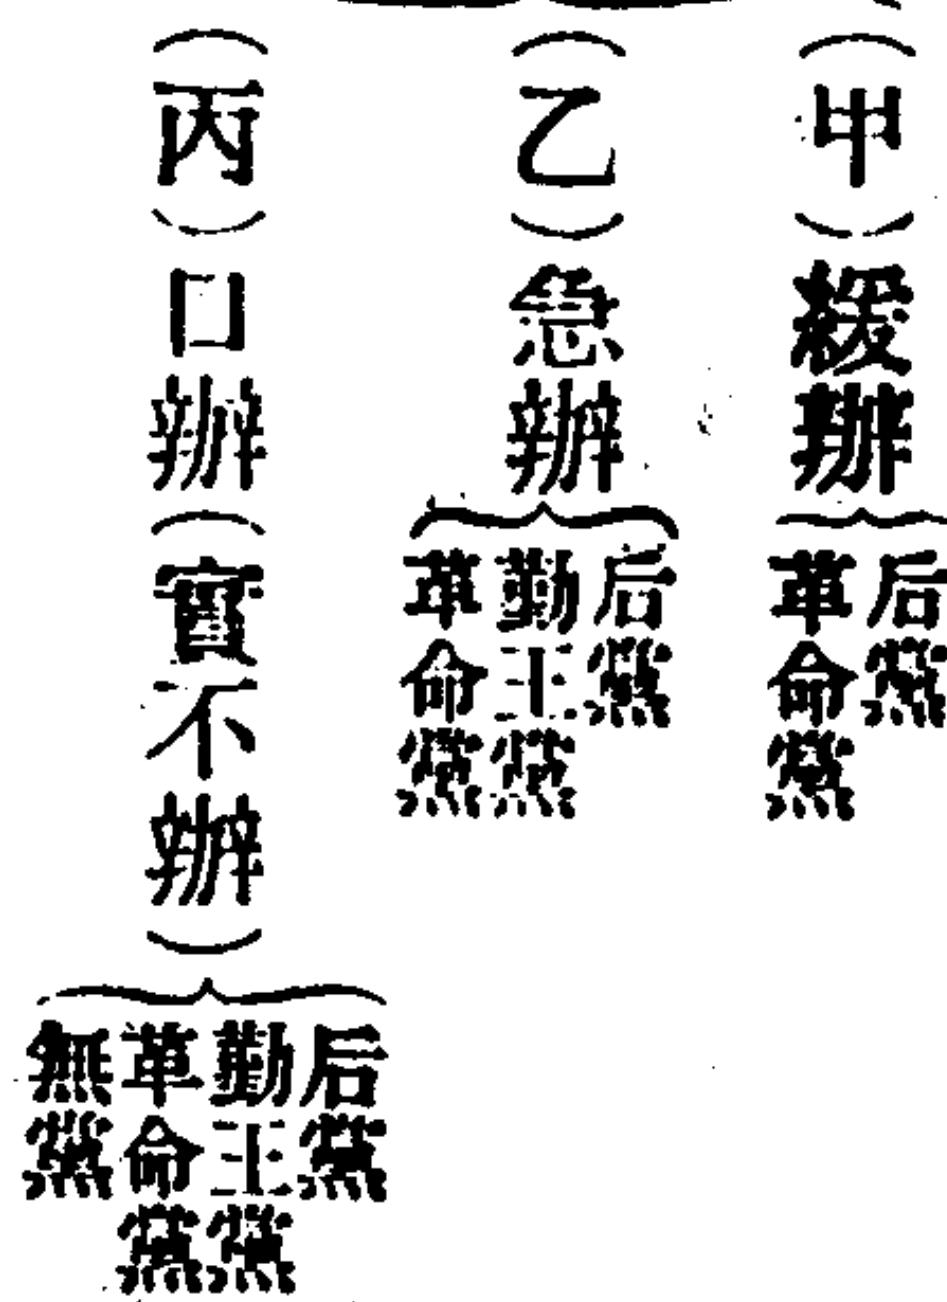 （甲）緩辦
后黨
革命黨
（乙）急辦
后黨
勤王黨
革命黨
（丙）口辦（實不辦）
后黨
勤王黨
革命黨
無黨